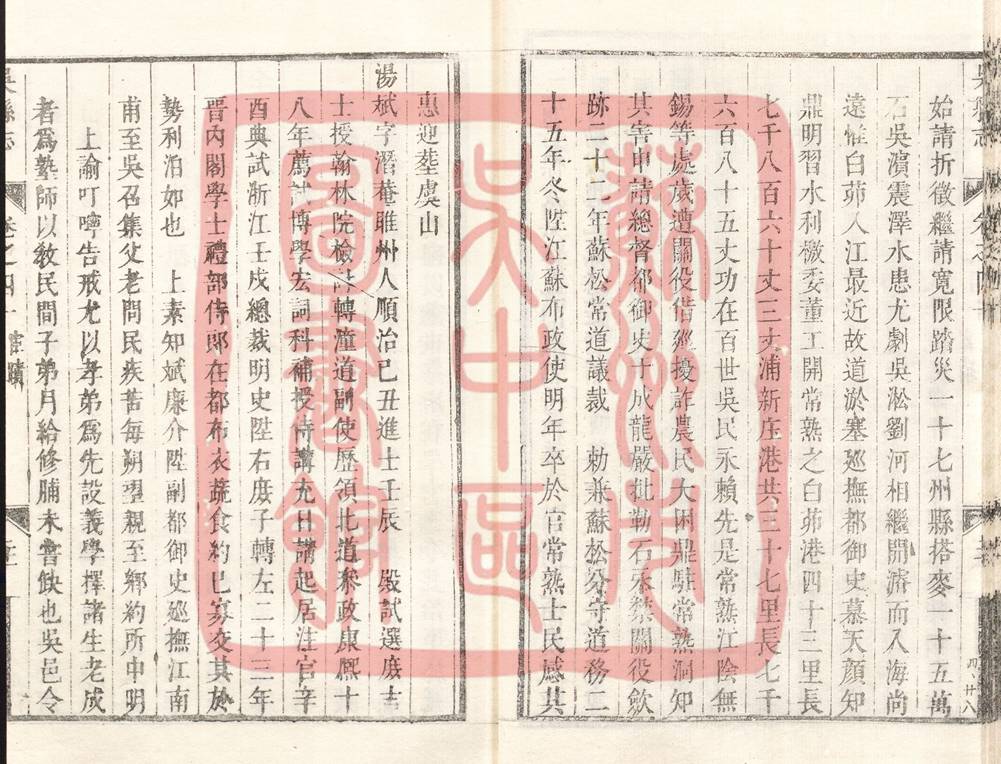 始請折徵繼請寬限踏災一十七州縣搭麥一十五萬
石吳濱震澤水患尤劇吳淞劉河相繼開濬而入海尚
遠惟白茆入江最近故道淤塞廵撫都御史慕天顔知
鼎明習水利檄委董工開常熟之白茆港四十三里長
七千八百六十丈三丈浦新庄港共三十七里長七千
六百八十五丈功在百世吳民永賴先是常熟江陰無
錫等處歲遭關役借廵擾詐農民大困鼎駐常熟洞知
其害申請總督都御史于成龍嚴批勒石永禁關役歛
跡二十二年蘇松常道議裁 勅兼蘇松分守道務二
十五年冬陞江蘇布政使明年卒於官常熟士民感其
惠迎塟虞山
湯斌字潛菴睢州人順治己丑進士壬辰 殿試選庶吉
士授翰林院檢討轉潼道副使歷領北道叅政康熈十
八年薦試博學宏詞科補授侍講充日講起居注官辛
酉典試浙江壬戍總裁明史陞右庶子轉左二十三年
晋內閣學士禮部侍郎在都布衣蔬食約已寡交其於
勢利泊如也 上素知斌廉介陞副都御史廵撫江南
甫至吳召集父老問民疾苦每朔望親至鄉約所申明
上諭叮嚀告戒尤以孝弟爲先設義學擇諸生老成
者爲塾師以敎民間子弟月給修脯未嘗缺也吳邑令
吳縣志 卷之四十 宦蹟
蘇州市
吳中區
圖書館
四、廿八